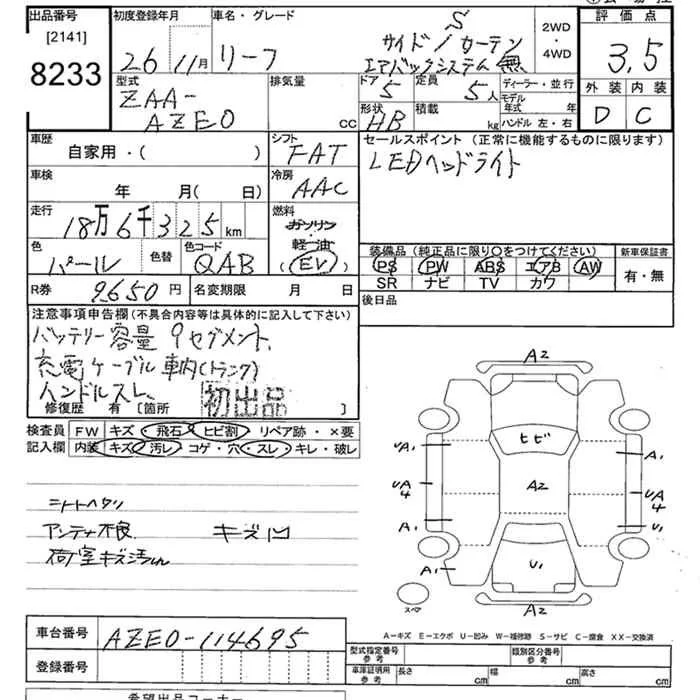 出品番号
[2141]
8233
初度登録年月
26 11月
車名・グレード
リーフ
S
サイド/カーテン
エアバックシステム無
2WD
・
4WD
評価点
3.5
外装 内装
D C
型式
ZAA-
AZE0
排気量
CC
ドア 5
定員 5人
形状 HB
積載 kg
ディーラー・並行
モデル年式 年
ハンドル 左・右
車歴
自家用・( )
シフト
FAT
セールスポイント(正常に機能するものに限ります)
LEDヘッドライト
車検
年 月( 日)
冷房
AAC
走行
18万6千325km
燃料
ガソリン
・
軽油
(EV)
色
パール
色替
色コード
QAB
装備品(純正品に限り○をつけてください)
PS PW ABS エアB AW
SR ナビ TV カワ
新車保証書
有・無
R券 9650円
名変期限 月 日
後日品
注意事項申告欄(不具合内容等は具体的に記入して下さい)
バッテリー容量 9セグメント、
充電ケーブル車内(トランク)
ハンドルスレ、
初出品
修復歴 有 〔箇所 〕
検査員
記入欄
FW キズ・飛石・ヒビ割・リペア跡・×要
内装 キズ・汚レ・コゲ・穴・スレ・キレ・破レ
シートヘタリ
アンテナ根 キズ凹
荷室キズ汚れ
A2
ヒビ
UA1
A1
A2
UA4
UA4
A1
U1
A1
U1
スペア
A2
A-キズ E-エクボ U-凹み W-補修跡 S-サビ C-腐食 XX-交換済
車台番号
AZE0-114695
登録番号
型式指定番号
参考
類別区分番号
参考
車庫証明用
参考
長さ cm
幅 cm
高さ cm
希望出品コーナー